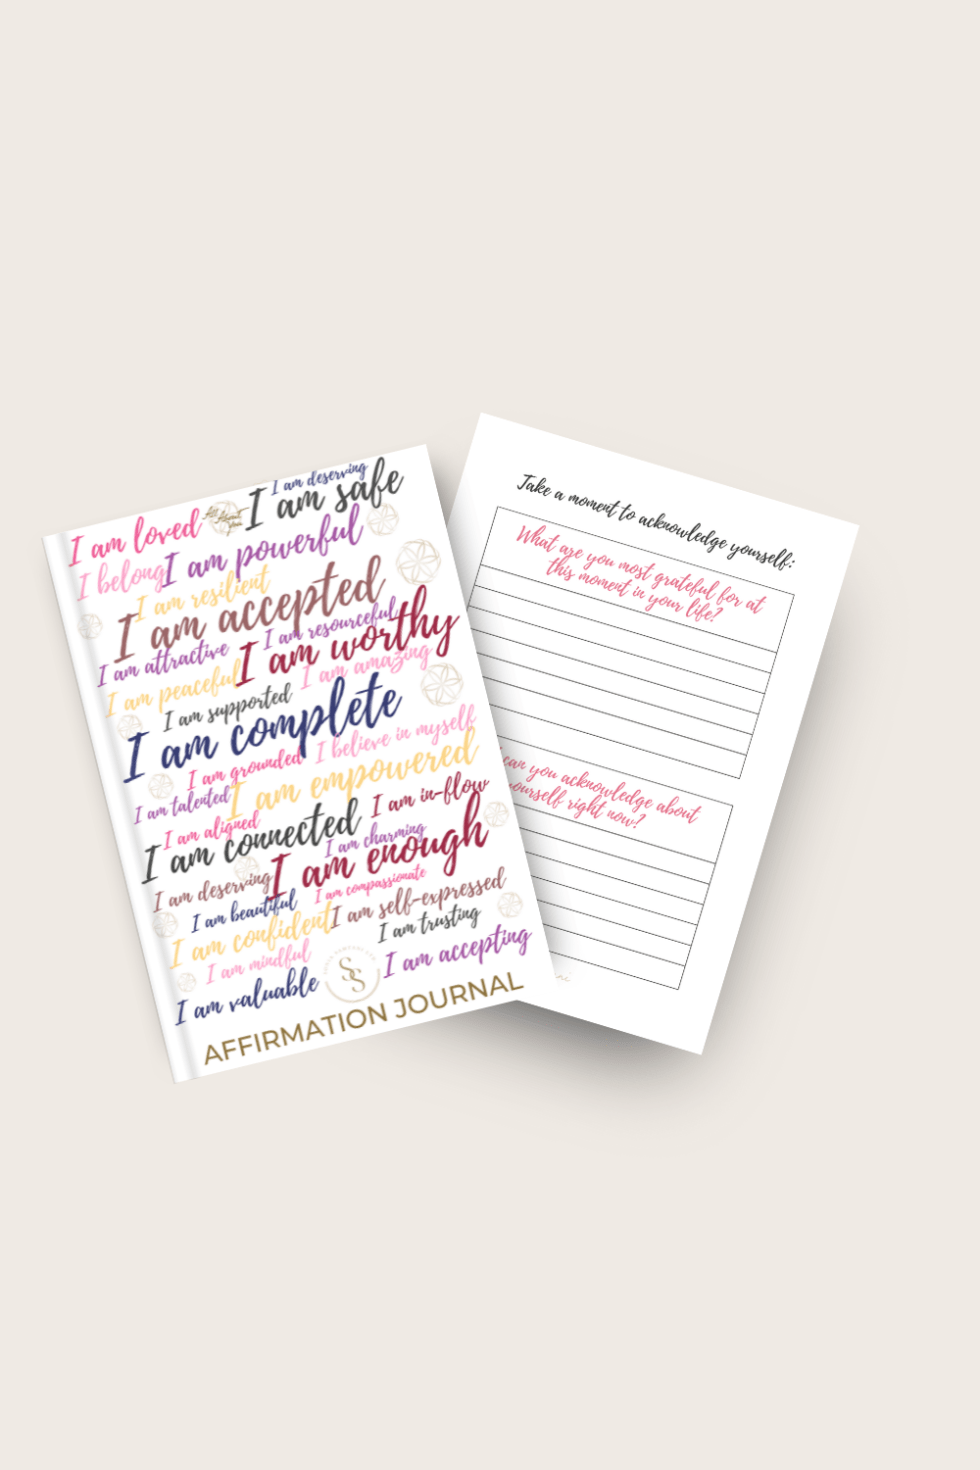 I am deserving
I am safe
I am loved
I am powerful
I belong
I am resilient
I am accepted
I am resourceful
I am worthy
I am attractive
I am amazing
I am peaceful
I am supported
I am complete
I believe in myself
I am grounded
I am empowered
I am talented
I am in-flow
I am aligned
I am connected
I am charming
I am enough
I am deserving
I am compassionate
I am beautiful
I am self-expressed
I am confident
I am trusting
I am mindful
I am accepting
I am valuable
SS
AFFIRMATION JOURNAL
Take a moment to acknowledge yourself:
What are you most grateful for at
this moment in your life?
can you acknowledge about
yourself right now?